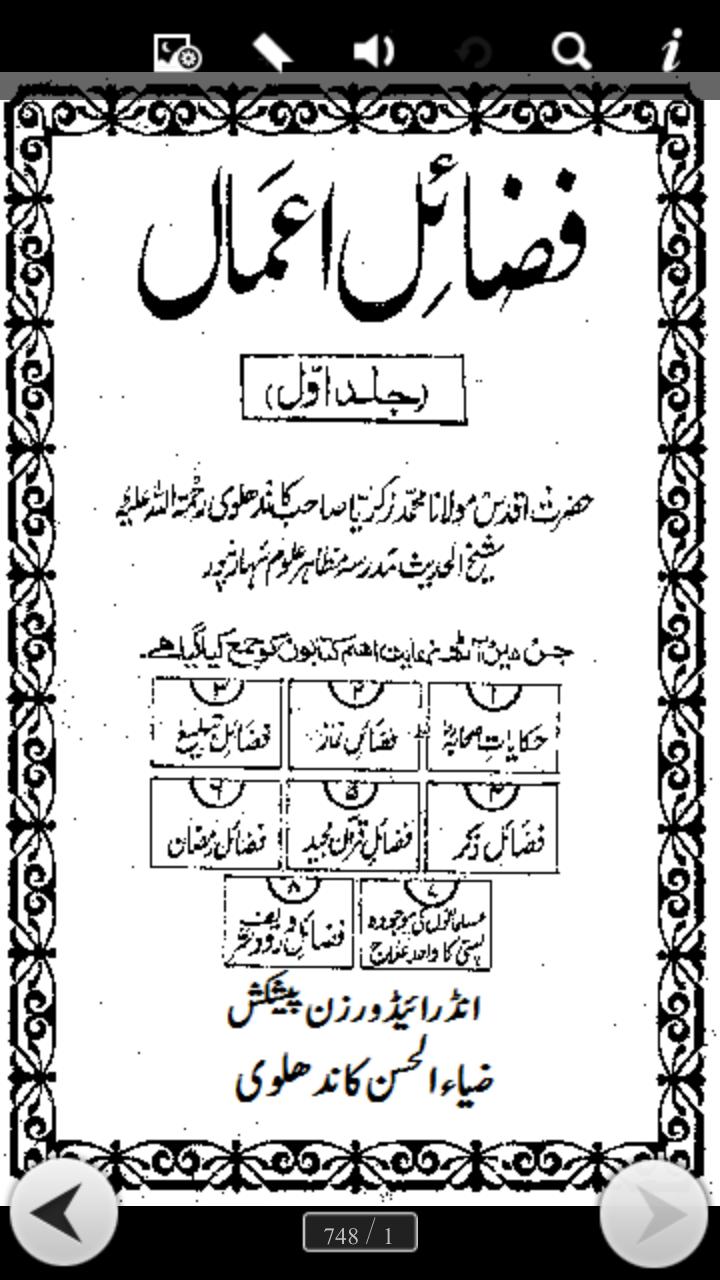 فضائلِ اعمال
(جلد اوّل)
حضرت اقدس مولانا محمد زکریا صاحب کاندھلوی رحمۃ اللہ علیہ
شیخ الحدیث مدرسہ مظاہر علوم سہارنپور
جس میں آٹھ نہایت اہم کتابوں کو جمع کیا گیا ہے۔
۱ ۲ ۳
حکایاتِ صحابہؓ فضائلِ نماز فضائلِ تبلیغ
۴ ۵ ۶
فضائلِ ذکر فضائلِ قرآن مجید فضائلِ رمضان
۷ ۸
مسلمانوں کی موجودہ پستی کا واحد علاج فضائلِ درود شریف
انڈرائیڈ ورزن پیشکش
ضیاء الحسن کاندھلوی
748 / 1